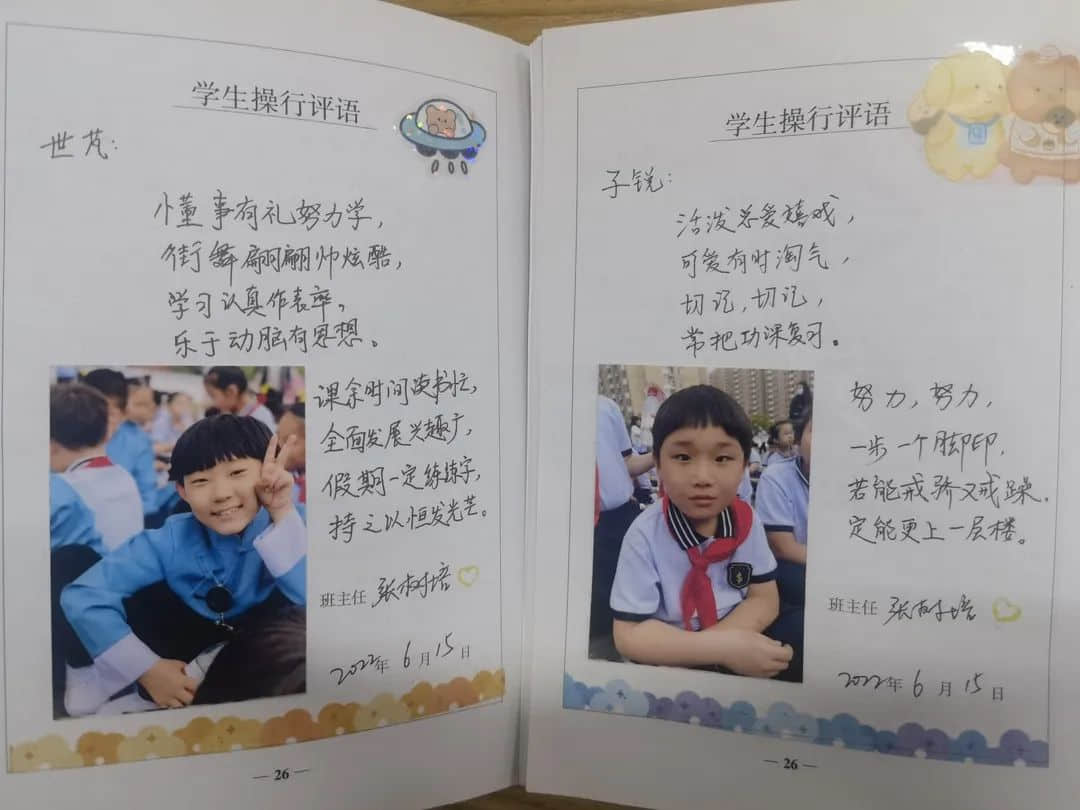 学生操行评语
世芃:
懂事有礼努力学,
街舞翩翩帅炫酷,
学习认真作表率。
乐于动脑有思想。
课余时间读书忙,
全面发展兴趣广,
假期一定练练字,
持之以恒发光芒。
班主任 张树培
2022年 6月15日
— 26 —
学生操行评语
子锐:
活泼总爱嬉戏,
可爱有时淘气,
切记,切记,
常把功课复习。
努力,努力,
一步一个脚印,
若能戒骄又戒躁,
定能更上一层楼。
班主任 张树培
2022年 6月15日
— 26 —